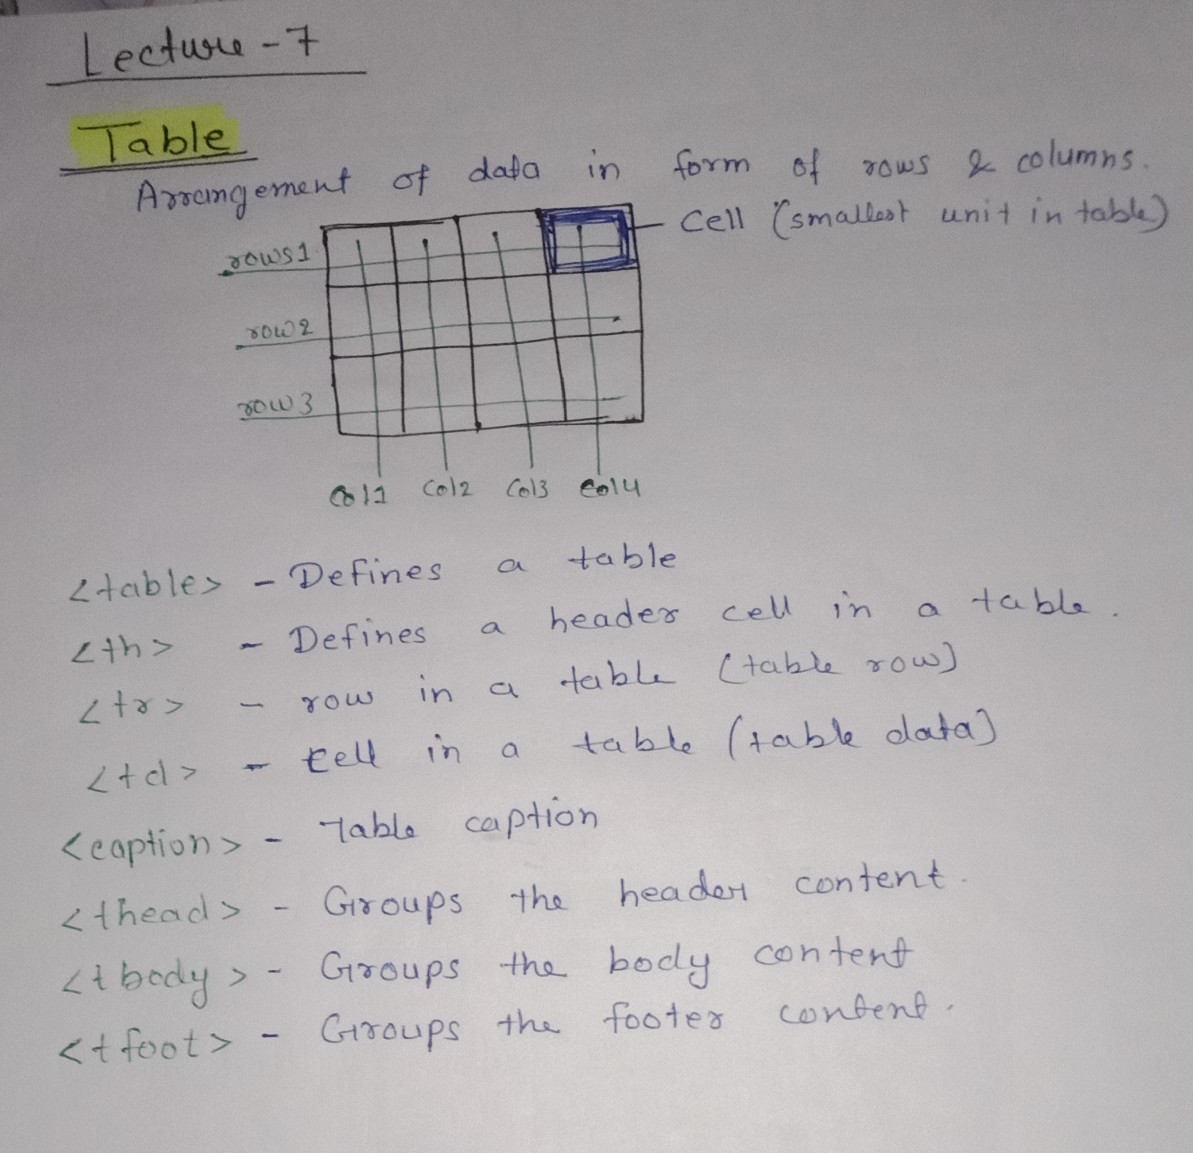 Lecture - 7
Table
Arrangement of data in form of rows & columns.
Cell (smallest unit in table)
rows1
row2
row3
Col1 Col2 Col3 Col4
<table> - Defines a table
<th> - Defines a header cell in a table.
<tr> - row in a table (table row)
<td> - cell in a table (table data)
<caption> - Table caption
<thead> - Groups the header content.
<tbody> - Groups the body content
<tfoot> - Groups the footer content.